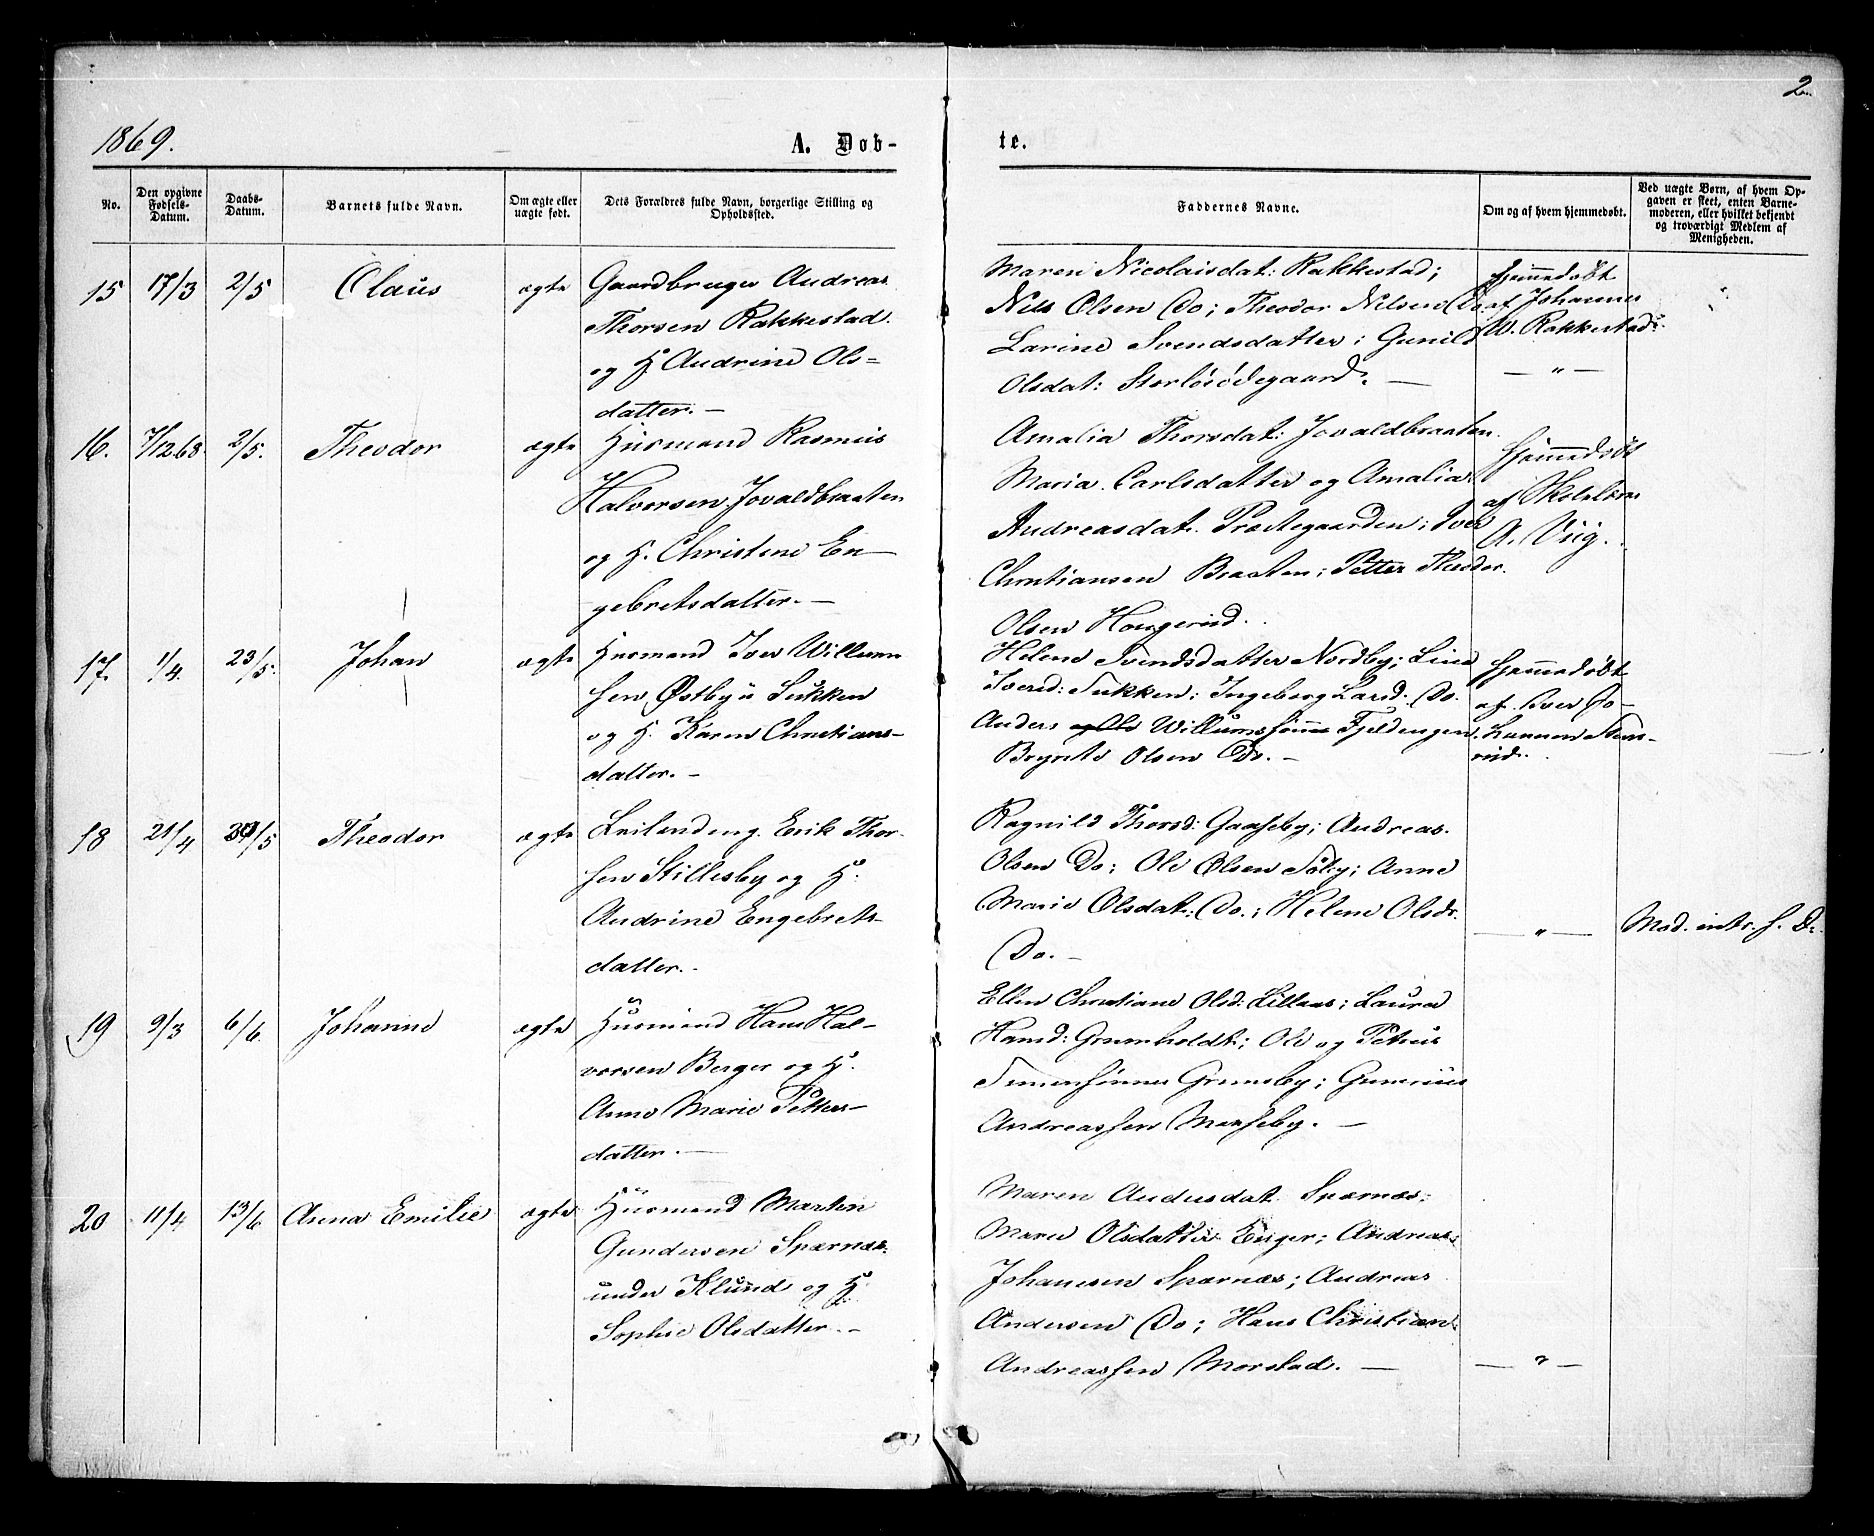 2
1869.
A. Døb-
te.
No.
Den opgivne Fødsels-Datum.
Daabs-Datum.
Barnets fulde Navn.
Om ægte eller uægte født.
Dets Forældres fulde Navn, borgerlige Stilling og Opholdssted.
Faddernes Navne.
Om og af hvem hjemmedøbt.
Ved uægte Børn, af hvem Op-
gaven er skeet, enten Barne-
moderen, eller hvilket bekjendt
og troværdigt Medlem af
Menigheden.
15 17/3 2/5 Olaus ægte Gaardbruger Andreas
Thorsen Rakkestad
og H Andrine Ols-
datter. —
Maren Nicolaisdat: Rakkestad;
Nils Olsen Do; Theodor Nilsen Do;
Larine Svendsdatter; Gunild
Olsdat: Storløsødegaard. —
Hjemmedøbt
af Johannes
Rakkestad.
— " —
16. 7/12 68 2/5. Theodor ægte Husmand Rasmus
Halvorsen Jovaldbraaten
og H. Christine En-
gebretsdatter. —
Amalia Thorsdat: Jovaldbraaten.
Maria Carlsdatter og Amalia
Andreasdat. Præstegaarden; Iver
Christiansen Braaten; Petter Theodor
Olsen Haugerud.
Hjemmedøbt
af Skolelærer
A. Viig.
17. 1/4. 23/5. Johan ægte Husmand Iver Willum
sen Østby u Sukken
og H. Karen Christians-
datter. —
Helene Svendsdatter Nordby; Line
Iversd: Sukken; Ingeborg Larsd. Do.
Anders og Ole Willumssønner Fjeldengen
Olsen Do. —
Hjemmedøbt
af Iver Jo-
hannsen
rud.
18 21/4 /5 Theodor ægte Leilending Erik Thor-
sen Stillesby og H.
Andrine Engebrets-
datter.
Ragnild Thorsd: Gaaseby; Andreas
Olsen Do; Ole Olsen ; Anne
Marie Olsdat: Do.; Helene Olsdr.
Do. —
— " —
Mod. intr. s. D.
19 9/3 6/6. Johanne ægte Husmand Hans Hal-
vorsen Berger og H.
Anne Marie Petters-
datter. —
Ellen Christiane Olsd: Lillaas; Laura
Hansd: ; Ole og Petrus
Simensønner Grimsby; Gunerius
Andreassen . —
20 11/4 13/6 Anna Emilie ægte Husmand Martin
Gundersen Spærnæs
under Klund og H
Sophie Olsdatter. —
Maren Andersdat. Spærnæs;
Maren Olsdatter Enger; Andreas
Johannesen Spærnæs; Andreas
Andersen Do; Hans Christian
Andreassen Morstad. —
— " —